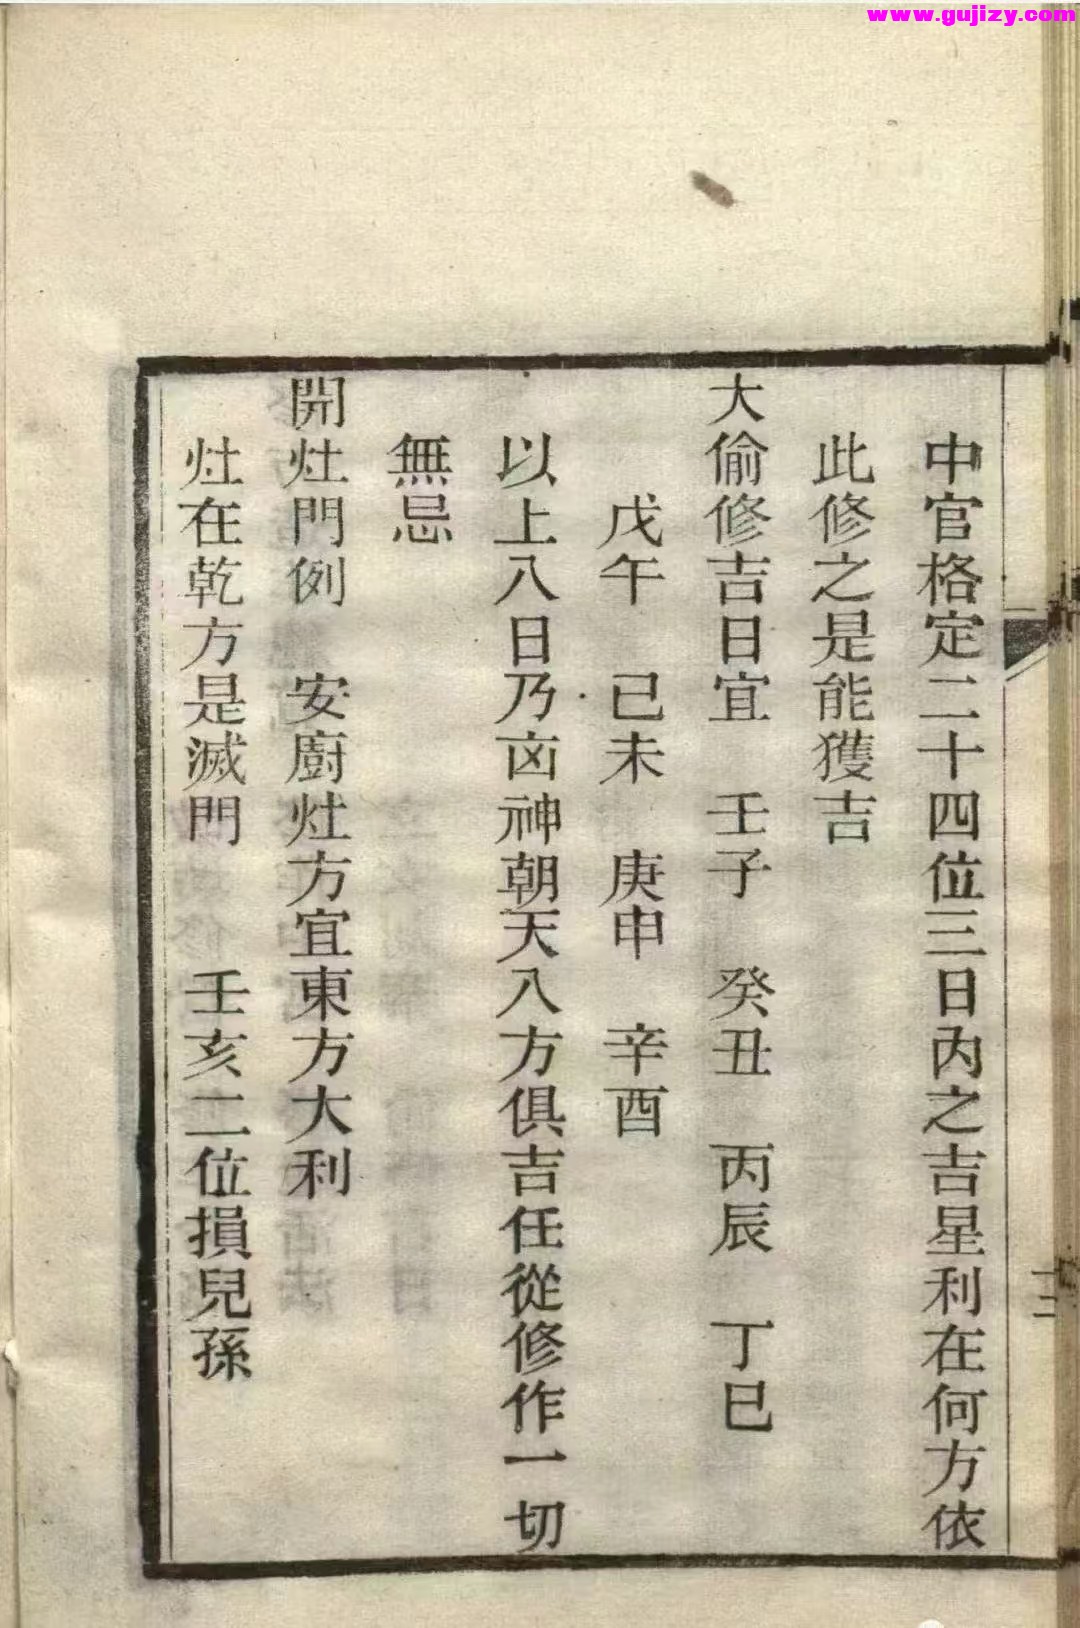 www.gujizy.com
中官格定二十四位三日內之吉星利在何方依
此修之是能獲吉
大偷修吉日宜　壬子　癸丑　丙辰　丁巳
戊午　己未　庚申　辛酉
以上八日乃凶神朝天八方俱吉任從修作一切
無忌
開灶門例　安廚灶方宜東方大利
灶在乾方是滅門　壬亥二位損兒孫
十二